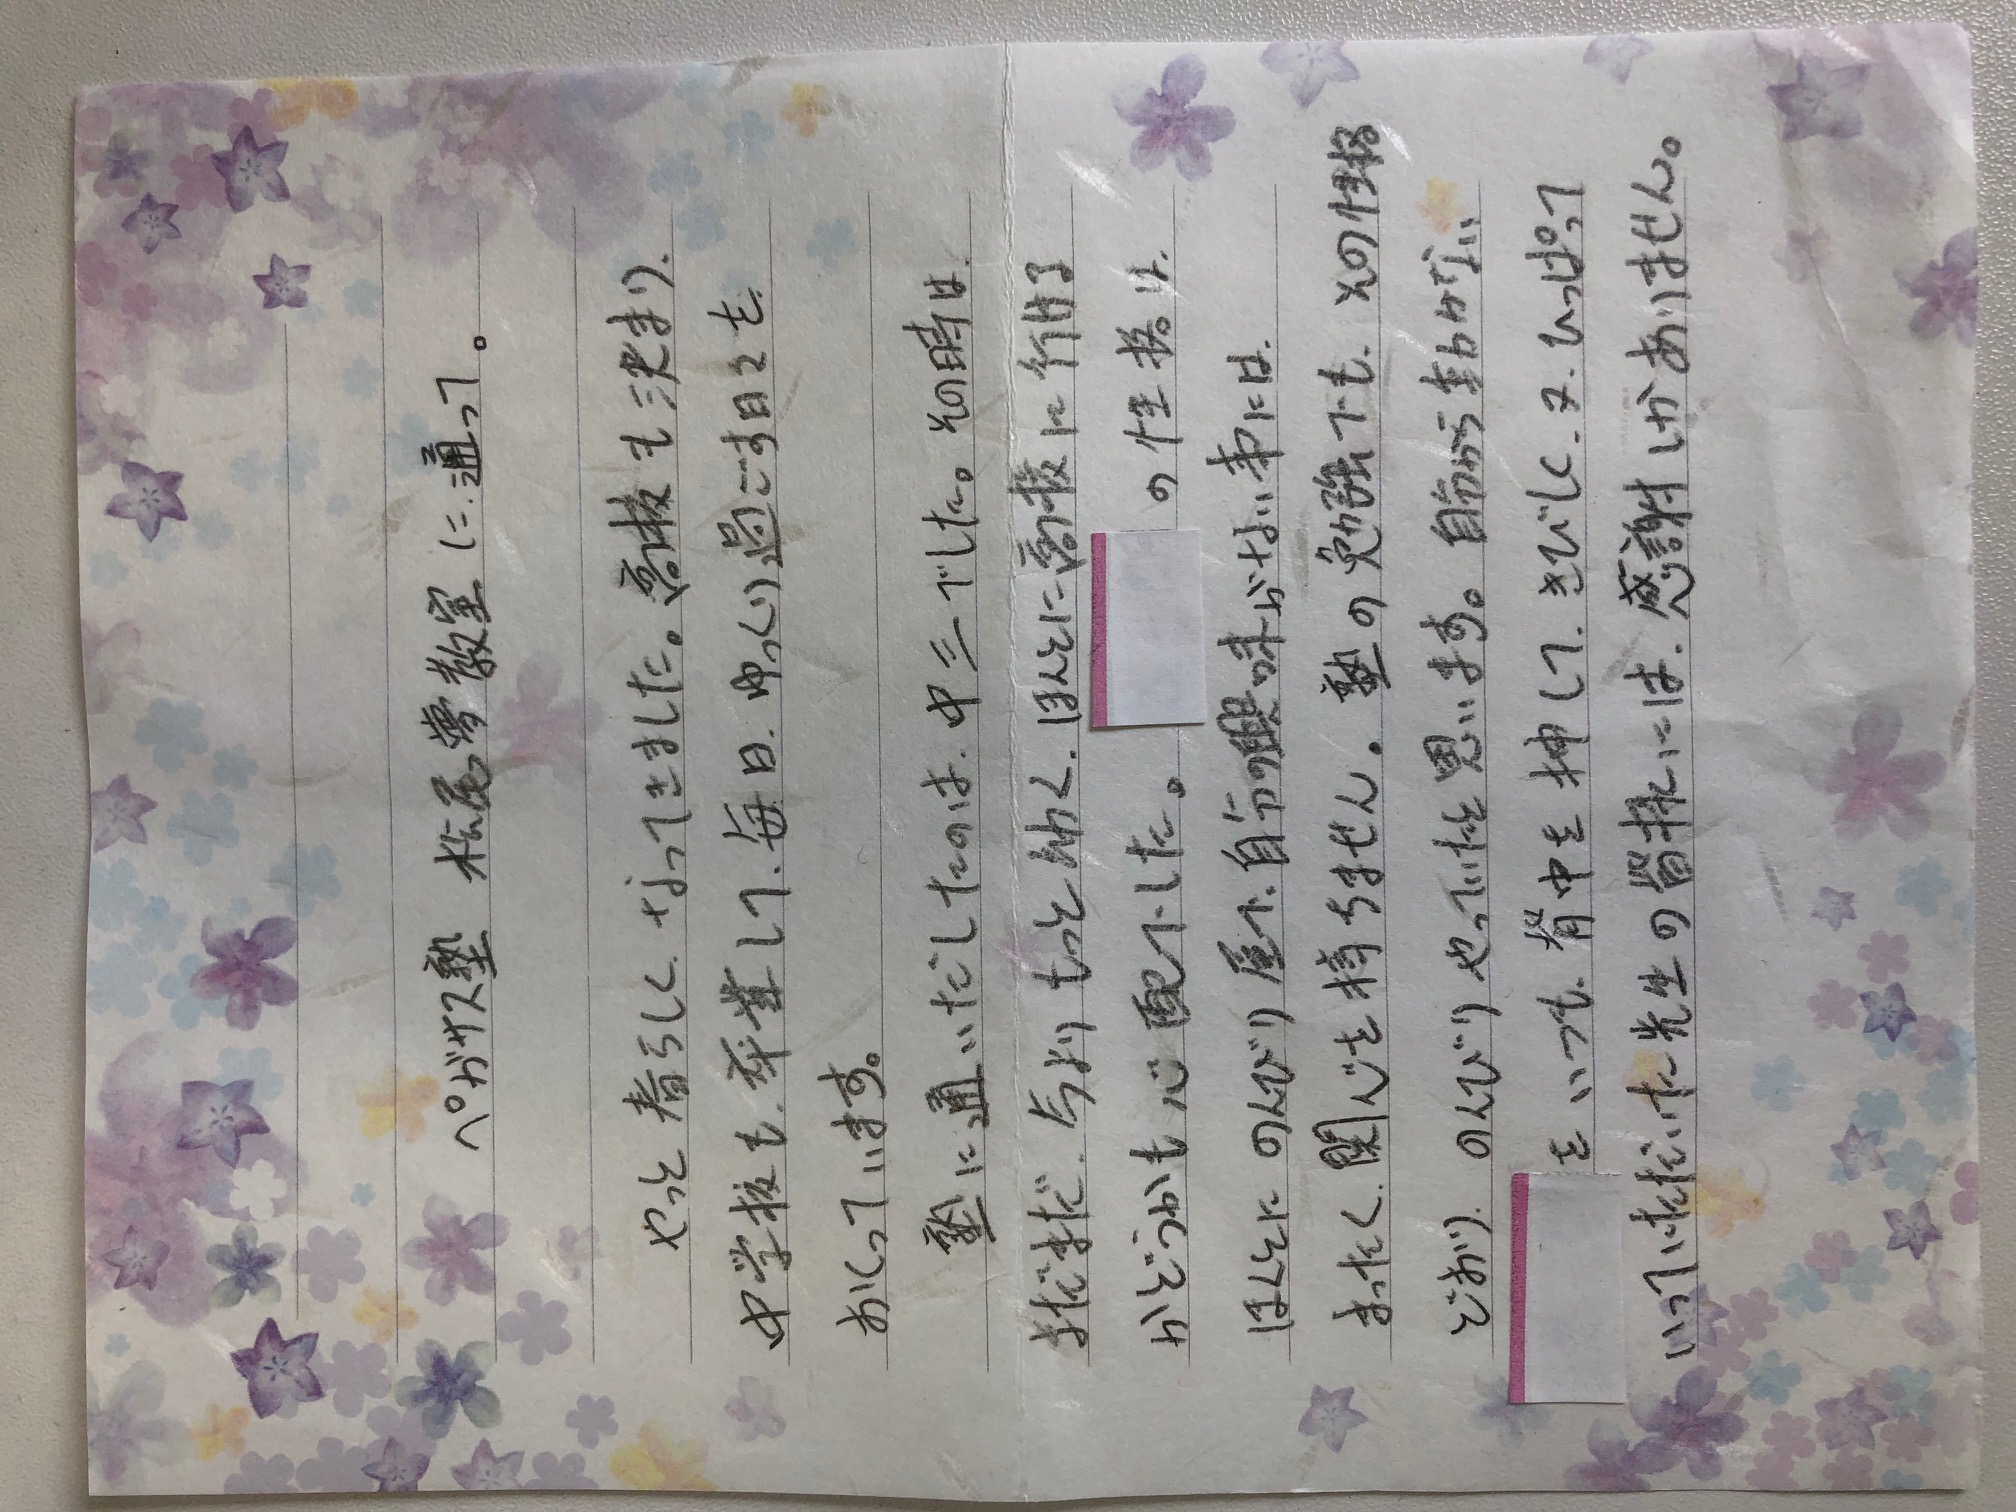 ペガサス塾 松尾夢教室に通って。
やっと春らしくなってきました。高校も決まり、
中学校も、卒業して、毎日、ゆっくり過ごす日々を
おくっています。
塾に通いだしたのは、中三でした。その時は、
まだまだ、今よりもっと幼く、ほんとに高校に行ける
かどうかも心配でした。 の性格は、
ほんとにのんびり屋で、自分の興味がない事には、
まったく関心を持ちません。塾の勉強でも、その性格
どおり、のんびりやっていたと思います。自分から動かない
を、いつも、背中を押して、きびしく、又、ひっぱって
いっていただいた先生の皆様には、感謝しかありません。